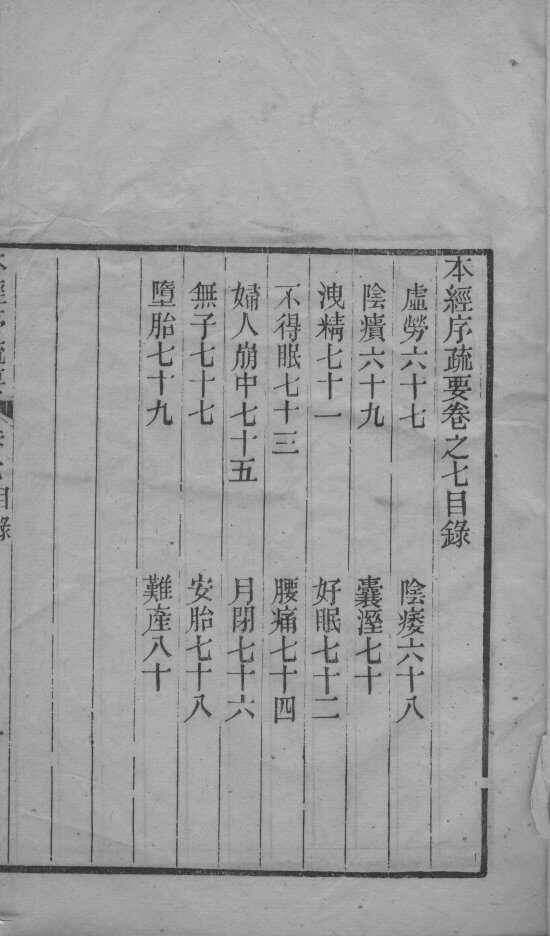 本經序疏要卷之七目錄
虛勞六十七　陰痿六十八
陰㿉六十九　囊溼七十
洩精七十一　好眠七十二
不得眠七十三　腰痛七十四
婦人崩中七十五　月閉七十六
無子七十七　安胎七十八
墮胎七十九　難產八十